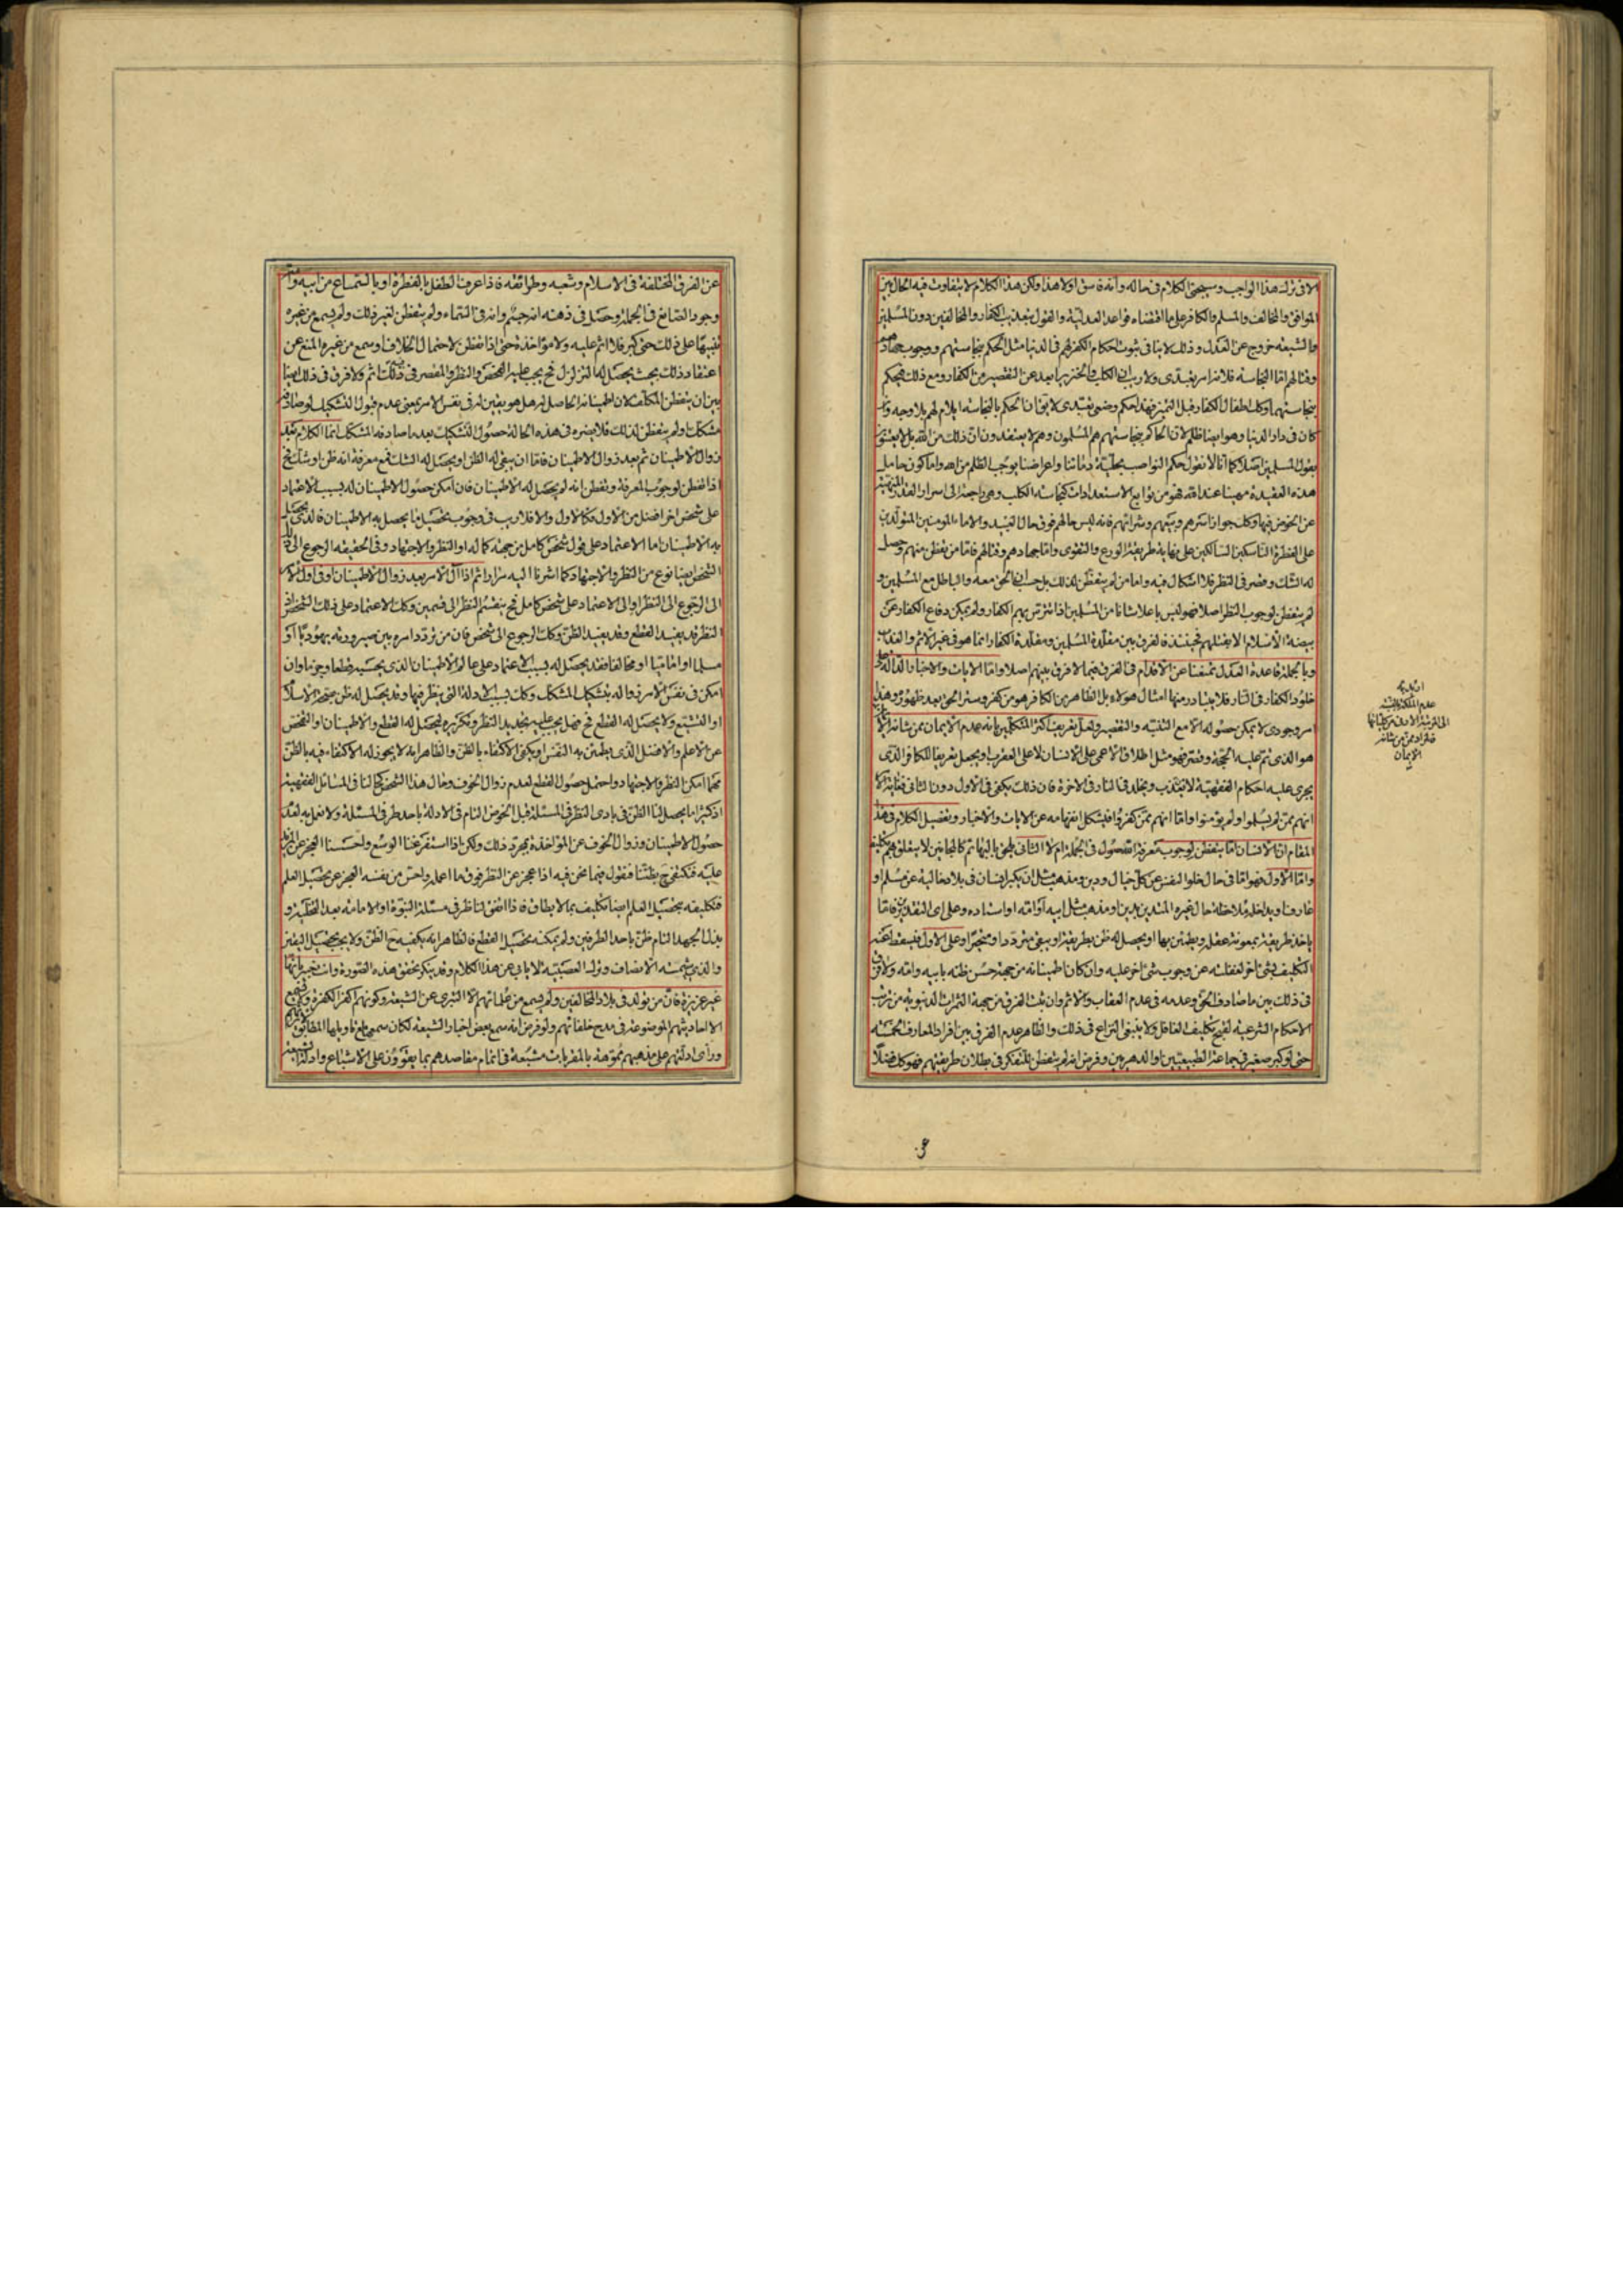 الا فى ترك هذا الواجب وسيجئ الكلام فى حاله وانه فاسق اولا هذا ولكن هذا الكلام لا يتفاوت فيه الحال بين
الموافق والمخالف والمسلم والكافر على ما اقتضاه قواعد العدلية والقول بتعذيب الكفار والمخالفين دون المسلمين
والشيعة خروج عن العدل وذلك لا ينافى ثبوت احكام الكفر لهم فى الدنيا مثل الحكم بنجاستهم ووجوب جهادهم
وقتالهم اما النجاسة فلانه امر تعبدى ولا ريب ان الكلب والخنزير ابعد عن التقصير من الكفار ومع ذلك فيحكم
بنجاستهما وكك اطفال الكفار قبل التميز فهذا حكم وضعى تعبدى لا يقال ان الحكم بالنجاسة ايلام لهم بلا وجه وان
كان فى دار الدنيا وهو ايضا ظلم لان الحاكم بنجاستهم هم المسلمون وهم لا يعتقدون ان ذلك من الله بل لا يعتنون
بقول المسلمين اصلا كما انا لا نقول حكم النواصب بحلية دمائنا واعراضنا يوجب الظلم من الله واما كون حامل
هذه العقيدة مهينا عند الله فهو من توابع الاستعدادات كنجاسة الكلب وهى راجعة الى اسرار القدر المنهية
عن الخوض فيها وكك جواز اسرهم وبيعهم وشرائهم فانه ليس حالهم فوق حال العبيد والاماء المؤمنين المتولدين
على الفطرة الناسكين السالكين على نهاية طريقة الورع والتقوى واما جهادهم وقتالهم فاما من تفطن منهم وحصل
له الشك وقصر فى النظر فلا اشكال فيه واما من لم يتفطن لذلك بل حسب ان الحق معه والباطل مع المسلمين و
لم يتفطن لوجوب النظر اصلا فهو ليس باعلا شانا من المسلمين اذا تترس بهم الكفار ولم يمكن دفاع الكفار عن
بيضة الاسلام الا بقتلهم فحينئذ فالفرق بين مقلدة المسلمين ومقلدة الكفار انما هو فى غير الاثم والعذاب
وبالجملة قاعدة العدل تمنعنا عن الاقدام فى الفرق فيما لا فرق بينهم اصلا واما الايات والاخبار الدالة على
خلود الكفار فى النار فلا يتبادر منها امثال هؤلاء بل الظاهر من الكافر هو من كفر وستر الحق بعد ظهوره وهذا
امر وجودى لا يمكن حصوله الا مع التنبه والتقصير ولعل تعريف اكثر المتكلمين بانه عدم الايمان ممن شانه الايمان
هو الذى تم عليه الحجة وقصر فهو مثل اطلاق الاعمى على الانسان لا على العقرب او يجعل تعريفا للكافر الذى
يجرى عليه احكام الفقهية لا يتعذب ويخلد فى النار فى الاخرة فان ذلك يكفى فى الاول دون الثانى فغاية الامر
انهم ممن لم يسلموا ولم يؤمنوا واما انهم ممن كفروا فيشكل انفهامه عن الايات والاخبار وتفصيل الكلام فى هذا
المقام ان الانسان اما يتفطن لوجوب معرفة الاصول فى الجملة ام لا الثانى يلحق بالبهائم كالمجانين لا يتعلق بهم تكليف
واما الاول فهو اما فى حال خلو النفس عن كل خيال ودين ومذهب مثل ان يكبر انسان فى بلاد خالية عن مسلم او
عارفنا ويداخله ملاحظة حال غيره المتدين بدين او مذهب مثل ابيه او امه او استاده وعلى اى التقديرين فاما
ياخذ طريقة بمعونة عقله ويطمئن بها او يحصل له ظن بطريقة او يبقى مترددا ومتحيرا وعلى الاول فيسقط عنه
التكليف بشئ اخر لغفلته عن وجوب شئ اخر عليه وان كان اطمينانه من جهة حسن ظنه بابيه وامه ولا فرق
فى ذلك بين ما صادف الحق وعدمه فى عدم العقاب والاثم وان ثبت الفرق من جهة الثمرات الدنيوية من ترتب
الاحكام الشرعية لقبح تكليف الغافل ولا ينبغى النزاع فى ذلك والظاهر عدم الفرق بين افراد المعارف الخمسة
حتى لو كبر صغير فى جماعة الطبيعيين او الدهريين وفرض انه لم يتفطن للتفكر فى بطلان طريقتهم فهو كك فضلا
عدم الملكة
الايمان
عن الفرق المختلفة فى الاسلام وشعبه وطوائفه فاذا عرف الطفل بالفطرة او بالتماع من ابيه وامه
وجود الصانع فى الجملة وحصل فى ذهنه انه جسم وانه فى السماء ولم يتفطن لغير ذلك ولم يسمع من غيره
تنبيها على ذلك حتى كبر فلا اثم عليه ولا مؤاخذة حتى اذا تفطن لاحتمال الخلاف او سمع من غيره المنع عن
اعتقاد ذلك بحيث يحصل له التزلزل فح يجب عليه الفحص والنظر والمقصر فى ذلك اثم ولا فرق فى ذلك ايضا
بين ان يتفطن المكلف لان اطمينانه الحاصل له هل هو يقين له فى نفس الامر بمعنى عدم قبول التشكيك لو صادف
مشككا ولم يتفطن لذلك فلا يضره فى هذه الحالة حصول التشكيك بعد ما صادفه المشكك انما الكلام بعد
زوال الاطمينان ثم بعد زوال الاطمينان فاما ان يبقى له الظن او يحصل له الشك فمع معرفة انه ظن او شك فح
اذا تفطن لوجوب المعرفة وتفطن انه لم يحصل له الاطمينان فان امكن حصول الاطمينان له بسبب الاعتماد
على شخص اخر افضل من الاول فكالاول والا فلا ريب فى وجوب تحصيل ما يحصل به الاطمينان فالذى يحصل
به الاطمينان اما الاعتماد على قول شخص كامل من جهة كماله او النظر والاجتهاد وفى الحقيقة الرجوع الى ذلك
الشخص ايضا نوع من النظر والاجتهاد كما اشرنا اليه مرارا ثم اذا آل الامر بعد زوال الاطمينان او فى اول الامر
الى الرجوع الى النظر او الى الاعتماد على شخص كامل فح ينقسم النظر الى قسمين وكك الاعتماد على ذلك الشخص اذ
النظر قد يفيد القطع وقد يفيد الظن وكك الرجوع الى شخص فان من تردد امره بين صيرورته يهوديا او
مسلما او اماميا او مخالفا فقد يحصل له بسبب الاعتماد على عالم الاطمينان الذى يحسبه قطعا وجزما وان
امكن فى نفس الامر زواله بتشكيك المشكك وكك بسبب الادلة التى ينظر فيها وقد يحصل له ظن بصحة الاسلام
او التشيع ولا يحصل له القطع فح فهل يجب عليه تجديد النظر وتكريره ليحصل له القطع والاطمينان او الفحص
عن الاعلم والافضل الذى يطمئن به النفس او يكفى الاكتفاء بالظن والظاهر انه لا يجوز له الاكتفاء فيه بالظن
مهما امكن النظر والاجتهاد واحتمل حصول القطع لعدم زوال الخوف وحال هذا الشخص كحالنا فى المسائل الفقهية
اذ كثيرا ما يحصل لنا الظن فى بادى النظر فى المسئلة قبل الخوض التام فى الادلة باحد طرفى المسئلة ولا نعمل به لعدم
حصول الاطمينان وزوال الخوف عن المؤاخذة بمجرد ذلك ولكن اذا استفرغنا الوسع واحسسنا العجز عن المزيد
عليه فنكتفى ح بظننا فنقول فيما نحن فيه اذا عجز عن النظر فوق ما اعمله واحس من نفسه العجز عن تحصيل العلم
فتكليفه بتحصيل العلم ايضا تكليف بما لا يطاق فاذا اتفق لناظر فى مسئلة النبوة او الامامة بعد التخلية و
بذل الجهد التام ظن باحد الطرفين ولم يمكنه تحصيل القطع فالظاهر انه يكفيه ح الظن ولا يجب تحصيل اليقين
والذى شيمته الانصاف وترك العصبية لا يابى عن هذا الكلام وقد ينكر تحقق هذه الصورة وانت خبير بانها
غير عزيزة فان من تولد فى بلاد المخالفين ولم يسمع من علمائهم الا التبرى عن الشيعة وكونهم اكفر الكفرة ولم يسمع
الا احاديثهم الموضوعة فى مدح خلفائهم ولو فرض انه سمع بعض اخبار الشيعة لكان سمعها مع تاويلها
وراى ادلتهم على مذهبهم مموهة بالمقربات مشبعة فى اتمام مقاصدهم بما يقوون على الاشباع وادلة الشيعة